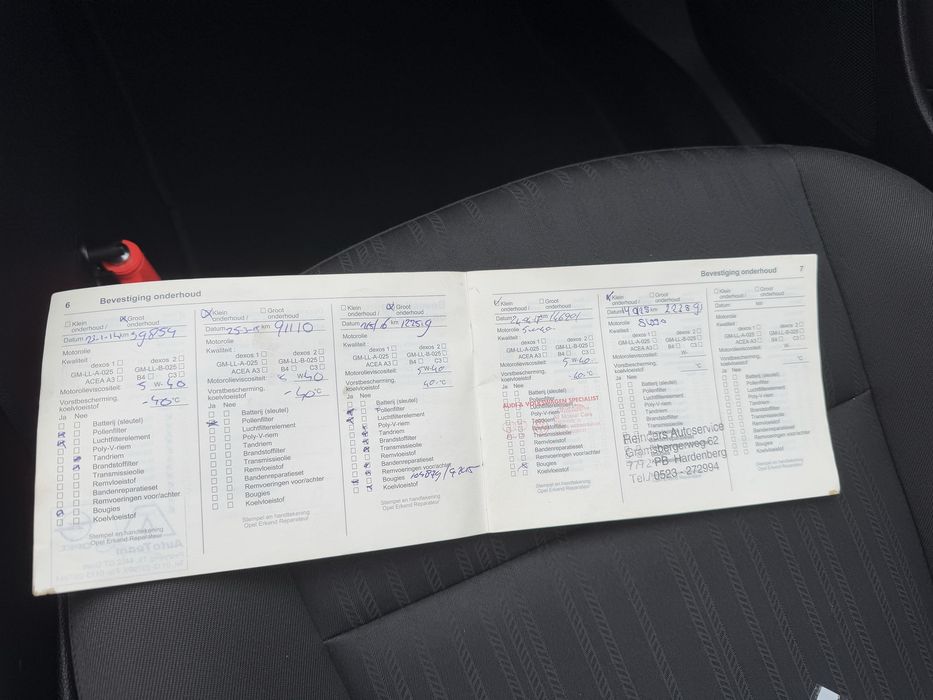 6 Bevestiging onderhoud
Klein onderhoud / Groot onderhoud
Datum 22-1-14 km 59859
Motorolie
Kwaliteit: dexos 1 dexos 2
GM-LL-A-025 GM-LL-B-025
ACEA A3 B4 C3
Motorolieviscositeit: 5 W- 40
Vorstbescherming, koelvloeistof -40 °C
Ja Nee
Batterij (sleutel)
Pollenfilter
Luchtfilterelement
Poly-V-riem
Tandriem
Brandstoffilter
Transmissieolie
Remvloeistof
Bandenreparatieset
Remvoeringen voor/achter
Bougies
Koelvloeistof
Stempel en handtekening
Opel Erkend Reparateur
AutoTeam
Klein onderhoud / Groot onderhoud
Datum 25-3-15 km 91110
Motorolie
Kwaliteit: dexos 1 dexos 2
GM-LL-A-025 GM-LL-B-025
ACEA A3 B4 C3
Motorolieviscositeit: 5 W- 40
Vorstbescherming, koelvloeistof -40 °C
Ja Nee
Batterij (sleutel)
Pollenfilter
Luchtfilterelement
Poly-V-riem
Tandriem
Brandstoffilter
Transmissieolie
Remvloeistof
Bandenreparatieset
Remvoeringen voor/achter
Bougies
Koelvloeistof
Stempel en handtekening
Opel Erkend Reparateur
Klein onderhoud / Groot onderhoud
Datum km
Motorolie
Kwaliteit: dexos 1 dexos 2
GM-LL-A-025 GM-LL-B-025
ACEA A3 B4 C3
Motorolieviscositeit: 5 W- 40
Vorstbescherming, koelvloeistof 40 °C
Ja Nee
Batterij (sleutel)
Pollenfilter
Luchtfilterelement
Poly-V-riem
Tandriem
Brandstoffilter
Transmissieolie
Remvloeistof
Bandenreparatieset
Remvoeringen voor/achter
Bougies
Koelvloeistof
Stempel en handtekening
Opel Erkend Reparateur
Bevestiging onderhoud 7
Klein onderhoud / Groot onderhoud
Datum km 146201
Motorolie 5-w-40
Kwaliteit: dexos 1 dexos 2
GM-LL-A-025 GM-LL-B-025
ACEA A3 B4 C3
Motorolieviscositeit: 5 W- 40
Vorstbescherming, koelvloeistof -40 °C
Ja Nee
Batterij (sleutel)
Pollenfilter
AUDI & VOLKSWAGEN SPECIALIST
Poly-V-riem
Brandstoffilter
Transmissieolie
Remvloeistof
Bandenreparatieset
Remvoeringen voor/achter
Bougies
Koelvloeistof
Stempel en handtekening
Opel Erkend Reparateur
Klein onderhoud / Groot onderhoud
Datum km
Motorolie 5W30
Kwaliteit: dexos 1 dexos 2
GM-LL-A-025 GM-LL-B-025
ACEA A3 B4 C3
Motorolieviscositeit: W-
Vorstbescherming, koelvloeistof °C
Ja Nee
Batterij (sleutel)
Pollenfilter
Luchtfilterelement
Poly-V-riem
Tandriem
Brandstoffilter
Reinders Autoservice
Gramsbergerweg 62
PB Hardenberg
Tel. 0523 - 272994
Klein onderhoud / Groot onderhoud
Datum km
Motorolie
Kwaliteit: dexos 1 dexos 2
GM-LL-A-025 GM-LL-B-025
ACEA A3 B4 C3
Motorolieviscositeit: W-
Vorstbescherming, koelvloeistof °C
Ja Nee
Batterij (sleutel)
Pollenfilter
Luchtfilterelement
Poly-V-riem
Tandriem
Brandstoffilter
Transmissieolie
Remvloeistof
Bandenreparatieset
Remvoeringen voor/achter
Bougies
Koelvloeistof
Stempel en handtekening
Opel Erkend Reparateur